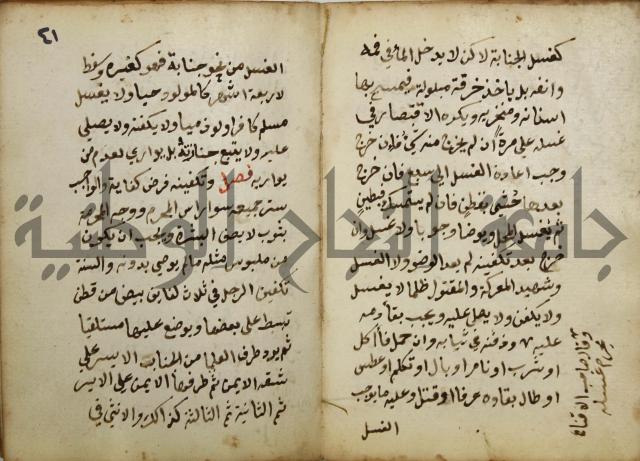 كغسل الجنابة لاكن لا يدخل الماء في فمه
وانفه بل ياخذ خرقة مبلولة فيمسح بها
اسنانه ومنخريه ويكره الاقتصار في
غسله على مرة ان لم يخرج منه شئ فان خرج
وجب اعادة الغسل الى سبع فان خرج
بعدها حشي بقطن فان لم يستمسك فبطين
ثم يغسل المحل ويوضأ وجوبا ولا غسل وان
خرج بعد تكفينه لم يعد الوضوء ولا الغسل
وشهيد المعركة والمقتول ظلما لا يغسل
ولا يكفن ولا يصلى عليه ويجب بقاء دمه
عليه ودفنه في ثيابه وان حمل فأكل
او شرب او نام او بال او تكلم او عطس
او طال بقاؤه عرفا او قتل وعليه ما يوجب
الغسل
وقال صاحب الاقناع
يحرم غسله
٤١
الغسل من نحو جنابة فهو كغيره وسقط
لاربعة اشهر كالمولود حيا ولا يغسل
مسلم كافرا ولو ذميا ولا يكفنه ولا يصلي
عليه ولا يتبع جنازته بل يواري لعدم من
يواريه فصل وتكفينه فرض كفاية والواجب
ستر جميعه سوا راس المحرم ووجه المحرمة
بثوب لا يصف البشرة ويجب ان يكون
من ملبوس مثله ما لم يوصي بدونه والسنة
تكفين الرجل في ثلاث لفايف بيض من قطن
تبسط على بعضها ويوضع عليها مستلقيا
ثم يرد طرف العليا من الجانب الايسر على
شقه الايمن ثم طرفها الايمن على الايسر
ثم الثانية ثم الثالثة كذالك والانثى في
جامع الاباحة الوطنية